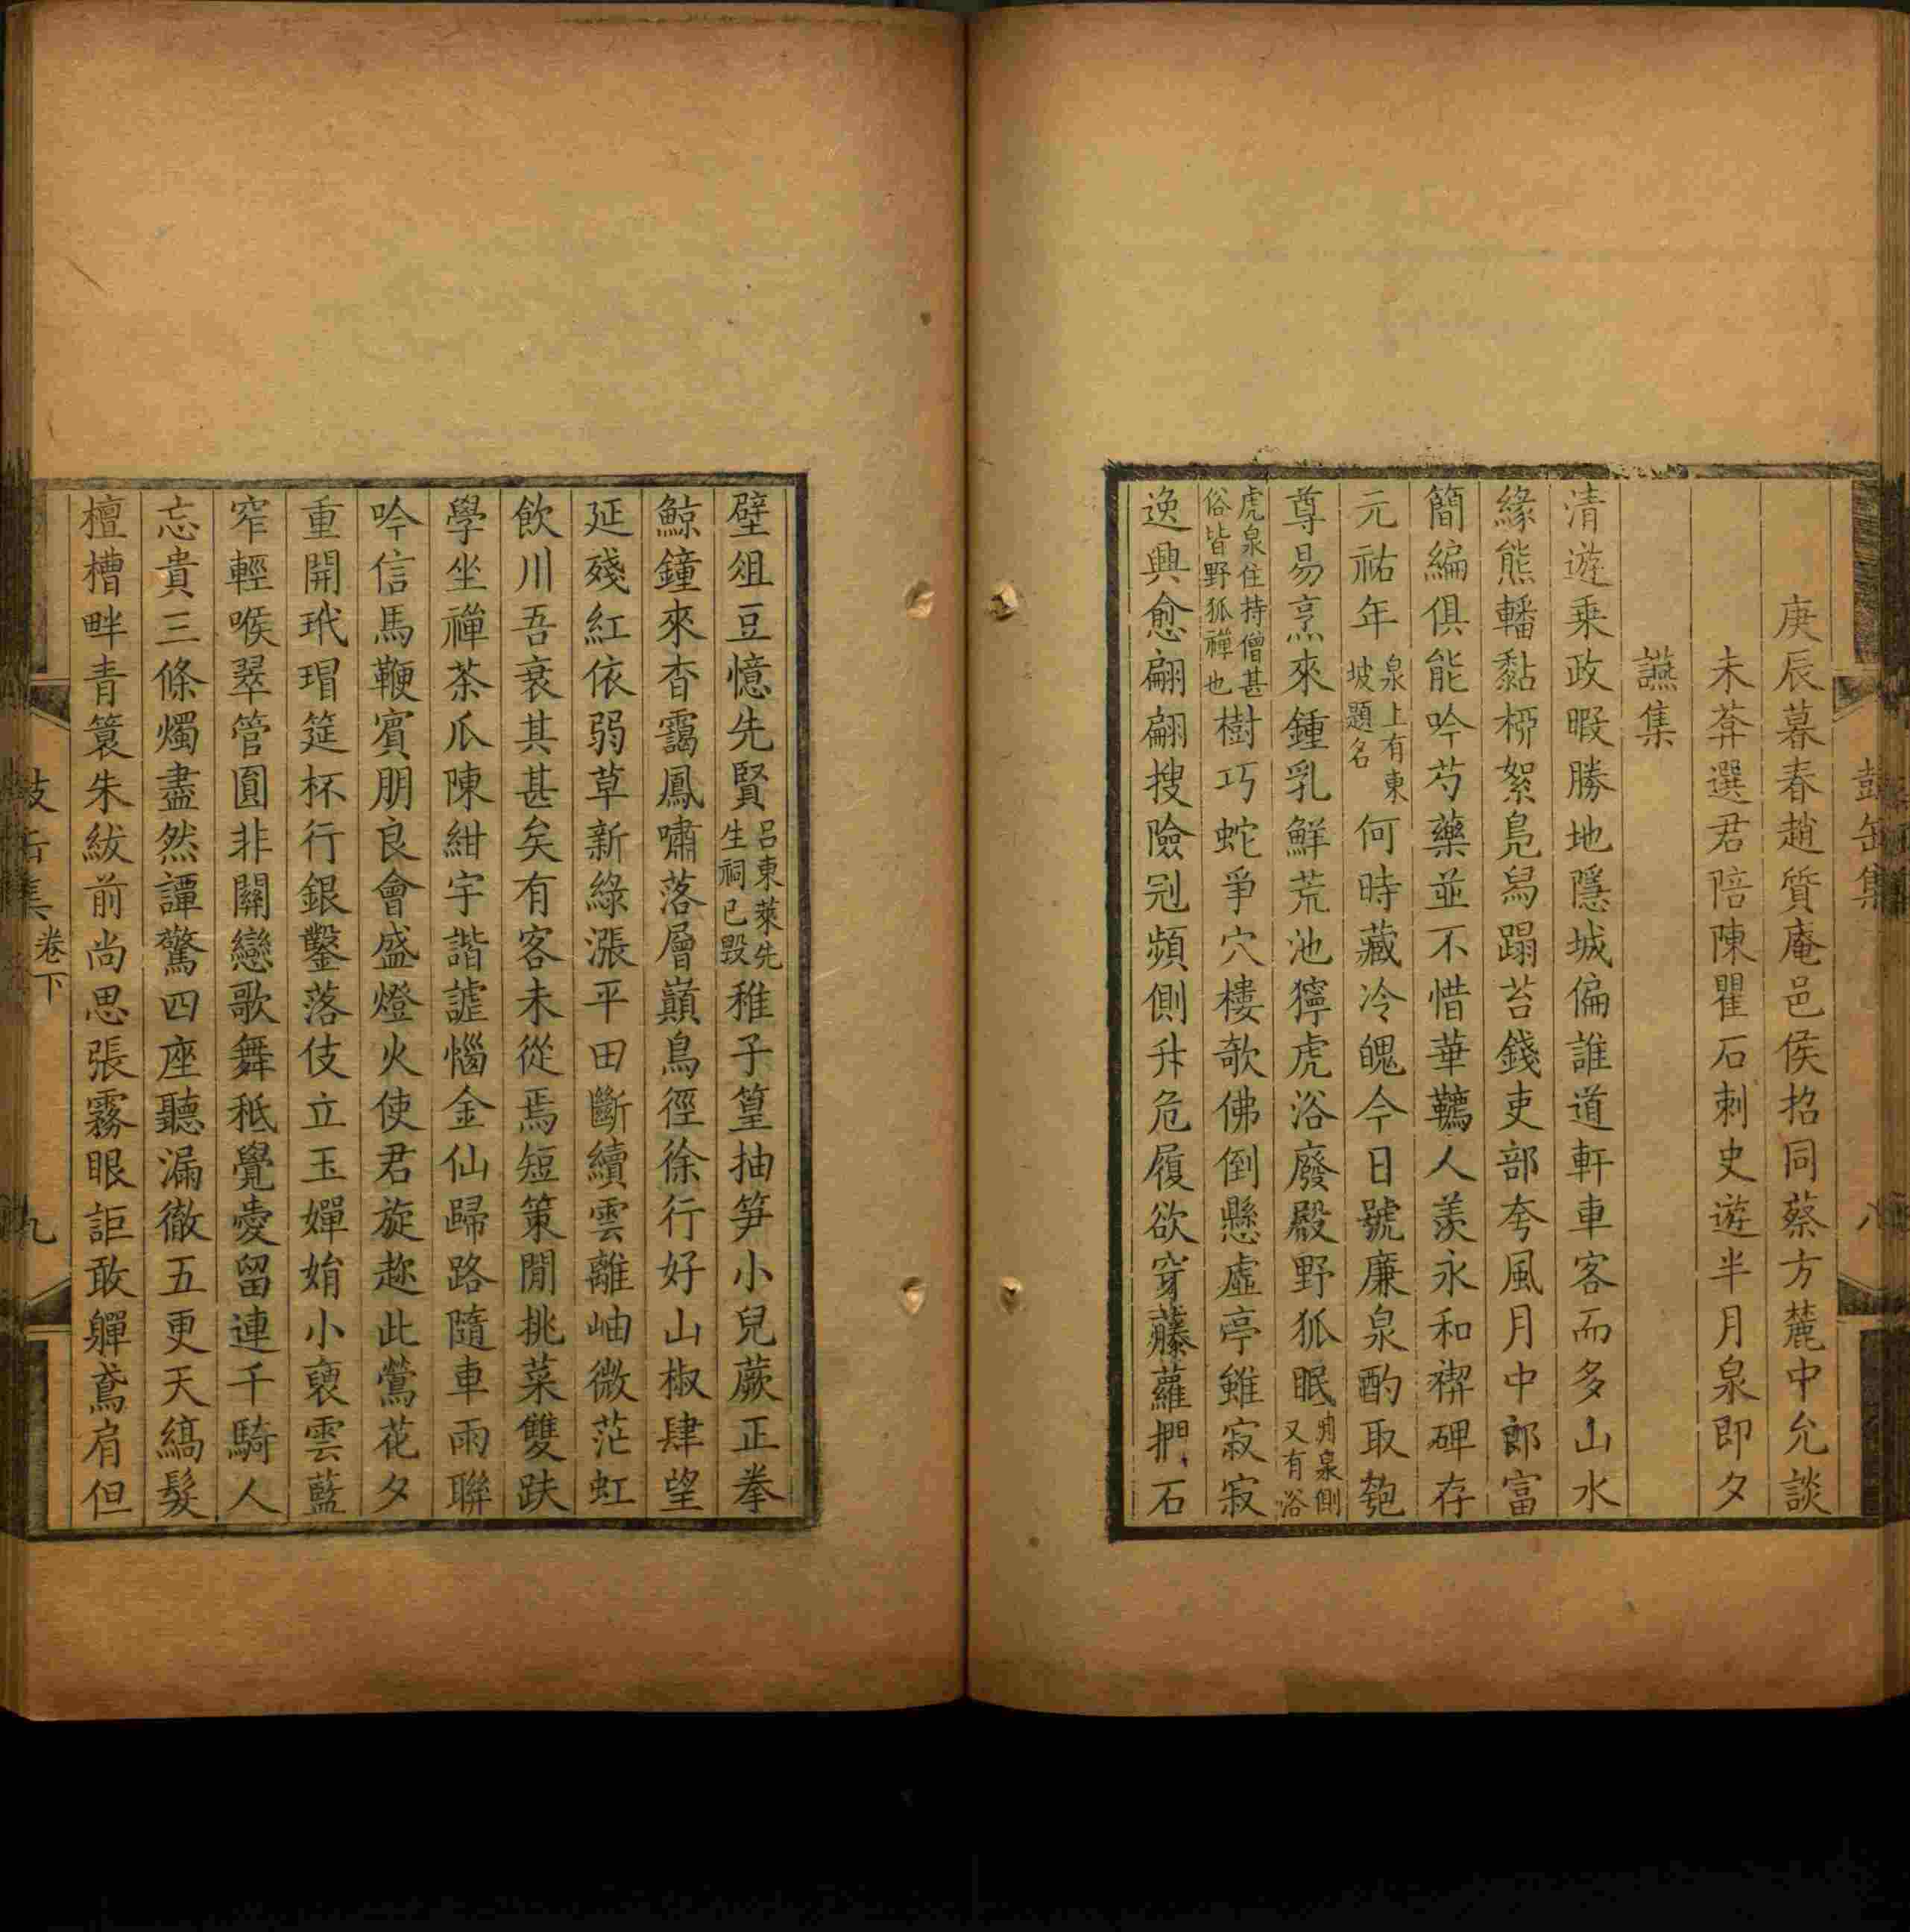 鼓缶集
八
庚辰暮春趙質庵邑侯招同蔡方麓中允談
未莽選君陪陳瞿石刺史遊半月泉即夕
讌集
清遊乗政暇勝地隱城偏誰道軒車客而多山水
緣熊轓黏椏絮鳧舄蹋苔錢吏部夸風月中郎富
簡編俱能吟芍藥並不惜華韉人羨永和禊碑存
元祐年泉上有東坡題名何時藏冷魄今日號廉泉酌取匏
尊易烹來鍾乳鮮荒池獰虎浴廢殿野狐眠泉側又有浴
虎泉住持僧甚俗皆野狐禪也樹巧蛇爭穴樓欹佛倒懸虛亭雖寂寂
逸興愈翩翩搜險冠頻側升危履欲穿藤蘿捫石
壁俎豆憶先賢呂東萊先生祠已毀稚子篁抽笋小兒蕨正拳
鯨鐘來杳靄鳳嘯落層巔鳥徑徐行好山椒肆望
延殘紅依弱草新綠漲平田斷續雲離岫微茫虹
飲川吾衰其甚矣有客未從焉短策閒挑菜雙趺
學坐禪茶瓜陳紺宇諧謔惱金仙歸路隨車雨聯
吟信馬鞭賓朋良會盛燈火使君旋趂此鶯花夕
重開玳瑁筵杯行銀鑿落伎立玉嬋娟小褎雲藍
窄輕喉翠管圓非關戀歌舞秪覺憂留連千騎人
忘貴三條燭盡然譚驚四座聽漏徹五更天縞髮
檀槽畔青蓑朱紱前尚思張霧眼詎敢軃鳶肩但
鼓缶集 卷下
九